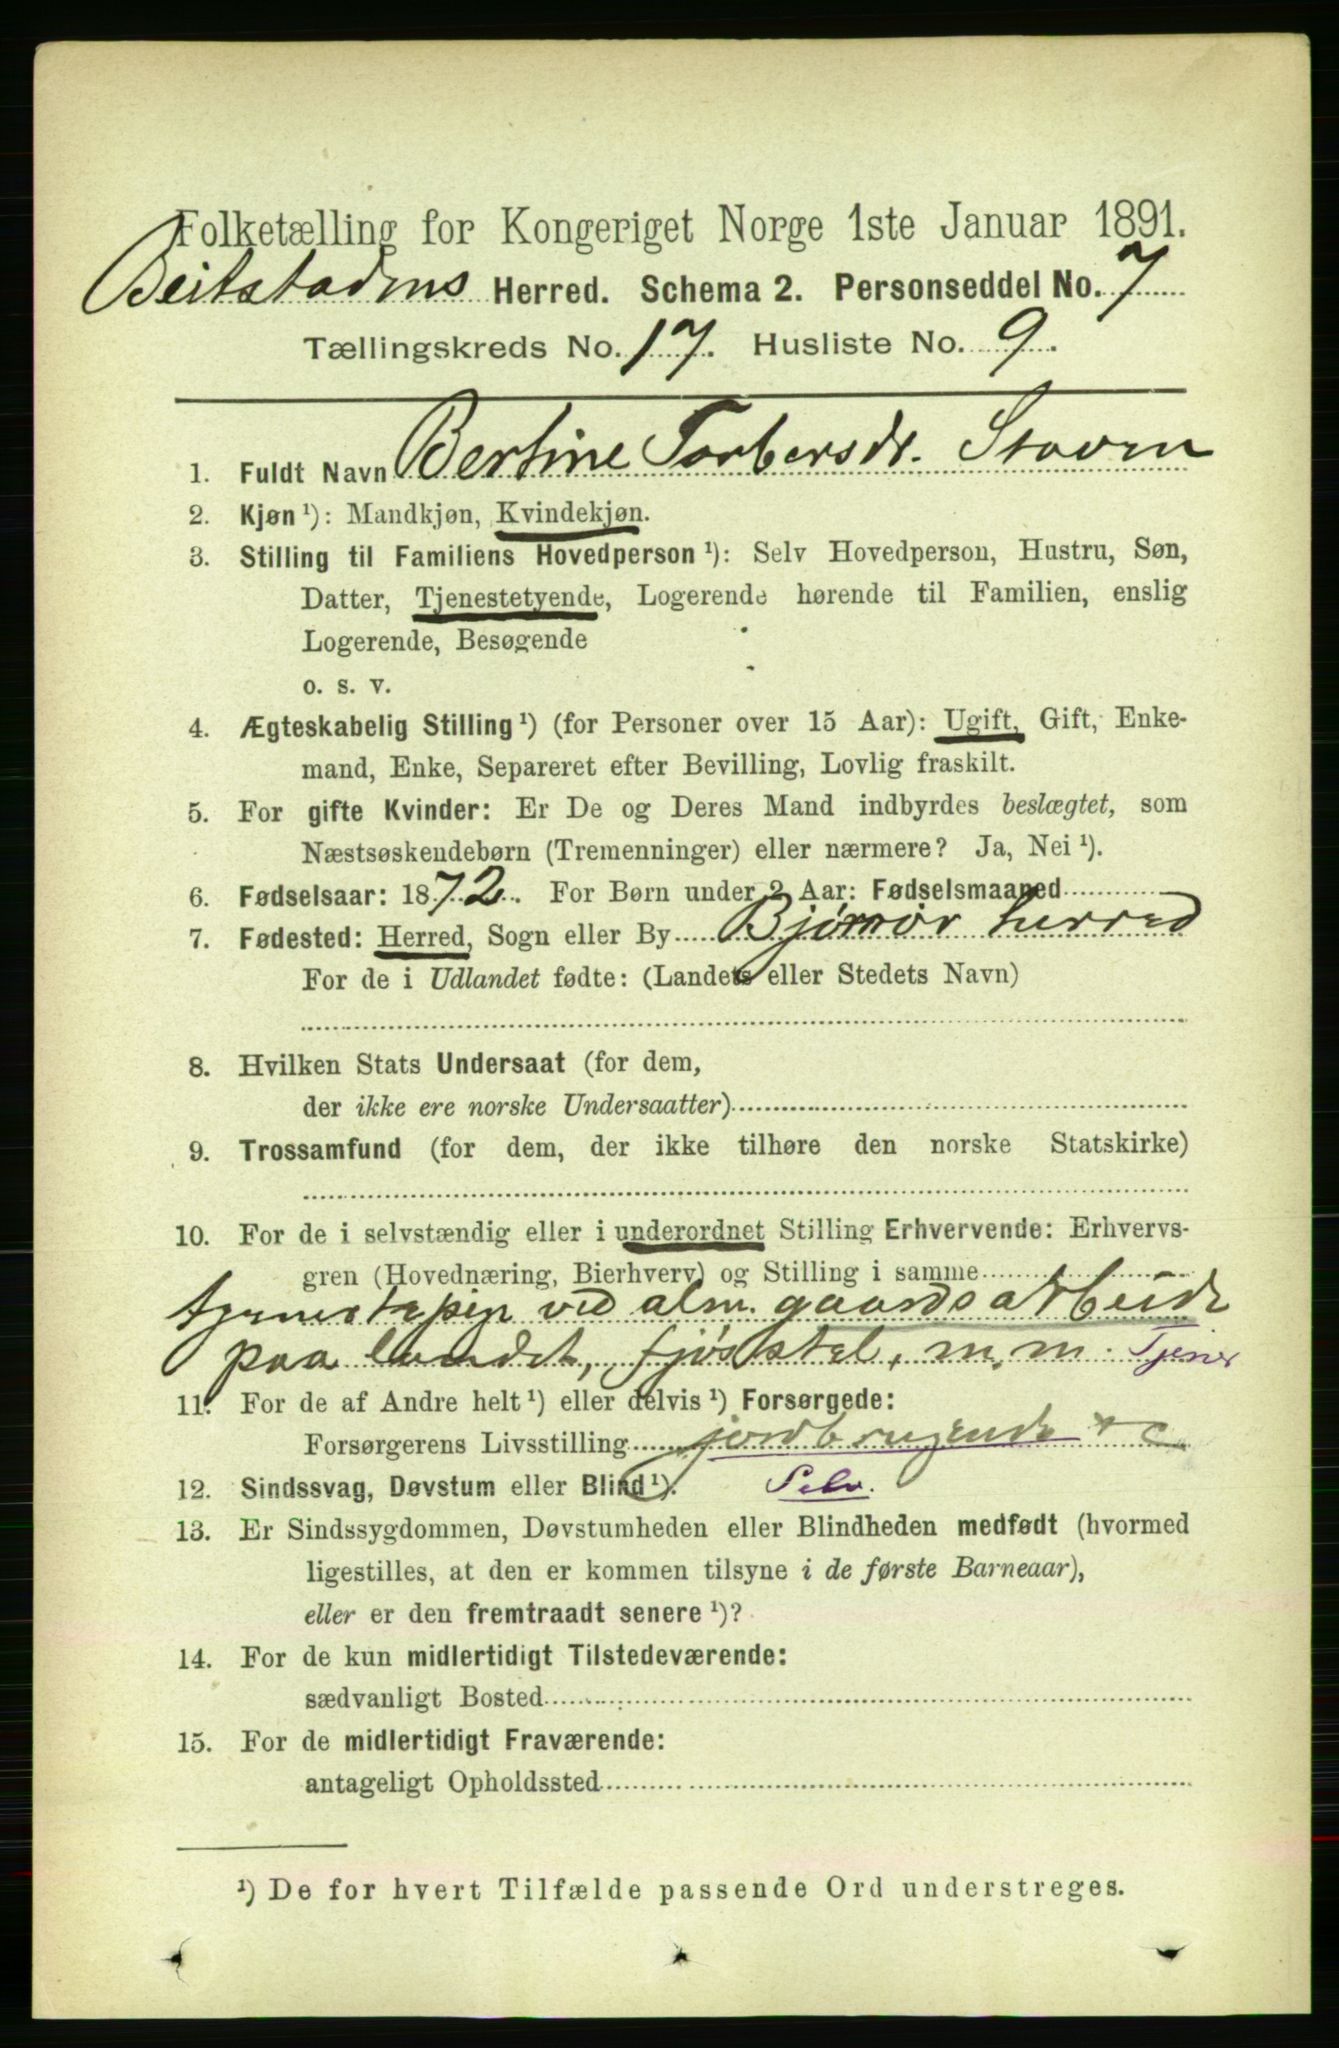 Folketælling for Kongeriget Norge 1ste Januar 1891.
Beitstadens Herred. Schema 2. Personseddel No. 7
Tællingskreds No. 17. Husliste No. 9.
1. Fuldt Navn Bertine Torbersdr. Staven
2. Kjøn ¹): Mandkjøn, Kvindekjøn.
3. Stilling til Familiens Hovedperson ¹): Selv Hovedperson, Hustru, Søn,
Datter, Tjenestetyende, Logerende hørende til Familien, enslig
Logerende, Besøgende
o. s. v.
4. Ægteskabelig Stilling ¹) (for Personer over 15 Aar): Ugift, Gift, Enke-
mand, Enke, Separeret efter Bevilling, Lovlig fraskilt.
5. For gifte Kvinder: Er De og Deres Mand indbyrdes beslægtet, som
Næstsøskendebørn (Tremenninger) eller nærmere? Ja, Nei ¹).
6. Fødselsaar: 1872. For Børn under 2 Aar: Fødselsmaaned
7. Fødested: Herred, Sogn eller By Bjørnør herred
For de i Udlandet fødte: (Landets eller Stedets Navn)
8. Hvilken Stats Undersaat (for dem,
der ikke ere norske Undersaatter)
9. Trossamfund (for dem, der ikke tilhøre den norske Statskirke)
10. For de i selvstændig eller i underordnet Stilling Erhvervende: Erhvervs-
gren (Hovednæring, Bierhverv) og Stilling i samme
tjenestepige ved alm. gaardsarbeide
paa landet, fjøsstel, m.m. Tjener
11. For de af Andre helt ¹) eller delvis ¹) Forsørgede:
Forsørgerens Livsstilling jordbrugende
12. Sindssvag, Døvstum eller Blind ¹). Selv.
13. Er Sindssygdommen, Døvstumheden eller Blindheden medfødt (hvormed
ligestilles, at den er kommen tilsyne i de første Barneaar),
eller er den fremtraadt senere ¹)?
14. For de kun midlertidigt Tilstedeværende:
sædvanligt Bosted
15. For de midlertidigt Fraværende:
antageligt Opholdssted
¹) De for hvert Tilfælde passende Ord understreges.